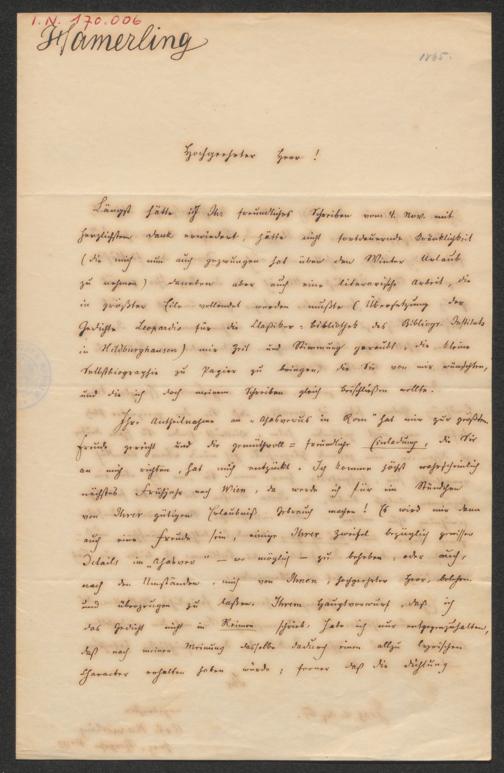 I.N. 170.006
Hamerling
1865.
Hochgeehrter Herr!
Längst hätte ich Ihr freundliches Schreiben vom 4. Nov. mit
herzlichstem Dank erwiedert, hätte nicht fortdauernde Kränklichkeit
(die mich nun auch gezwungen hat über den Winter Urlaub
zu nehmen) daneben aber auch eine literarische Arbeit, die
in größter Eile vollendet werden mußte (Übersetzung der
Gedichte Leopardis für die Classiker-Bibliothek des Bibliogr. Instituts
in Hildburghausen) mir Zeit und Stimmung geraubt, die kleine
Selbstbiographie zu Papier zu bringen, die Sie von mir wünschten,
und die ich doch meinem Schreiben gleich beischließen wollte.
Ihre Antheilnahme an „Ahasverus in Rom" hat mir zur größten
Freude gereicht und die gemüthvoll-freundliche Einladung, die Sie
an mich richten, hat mich entzückt. Ich komme höchst wahrscheinlich
nächstes Frühjahr nach Wien, da werde ich für ein Stündchen
von Ihrer gütigen Erlaubniß Gebrauch machen! Es wird mir dann
auch eine Freude sein, einige Ihrer Zweifel bezüglich gewisser
Details im „Ahasver" — wo möglich — zu beheben, oder auch,
nach den Umständen, mich von Ihnen, hochgeehrter Herr, belehren
und überzeugen zu lassen. Ihrem Hauptvorwurf, daß ich
das Gedicht nicht in Reimen schrieb, habe ich nur entgegenzuhalten,
daß nach meiner Meinung dasselbe dadurch einen allzu lyrischen
Character erhalten haben würde; ferner daß die Dichtung